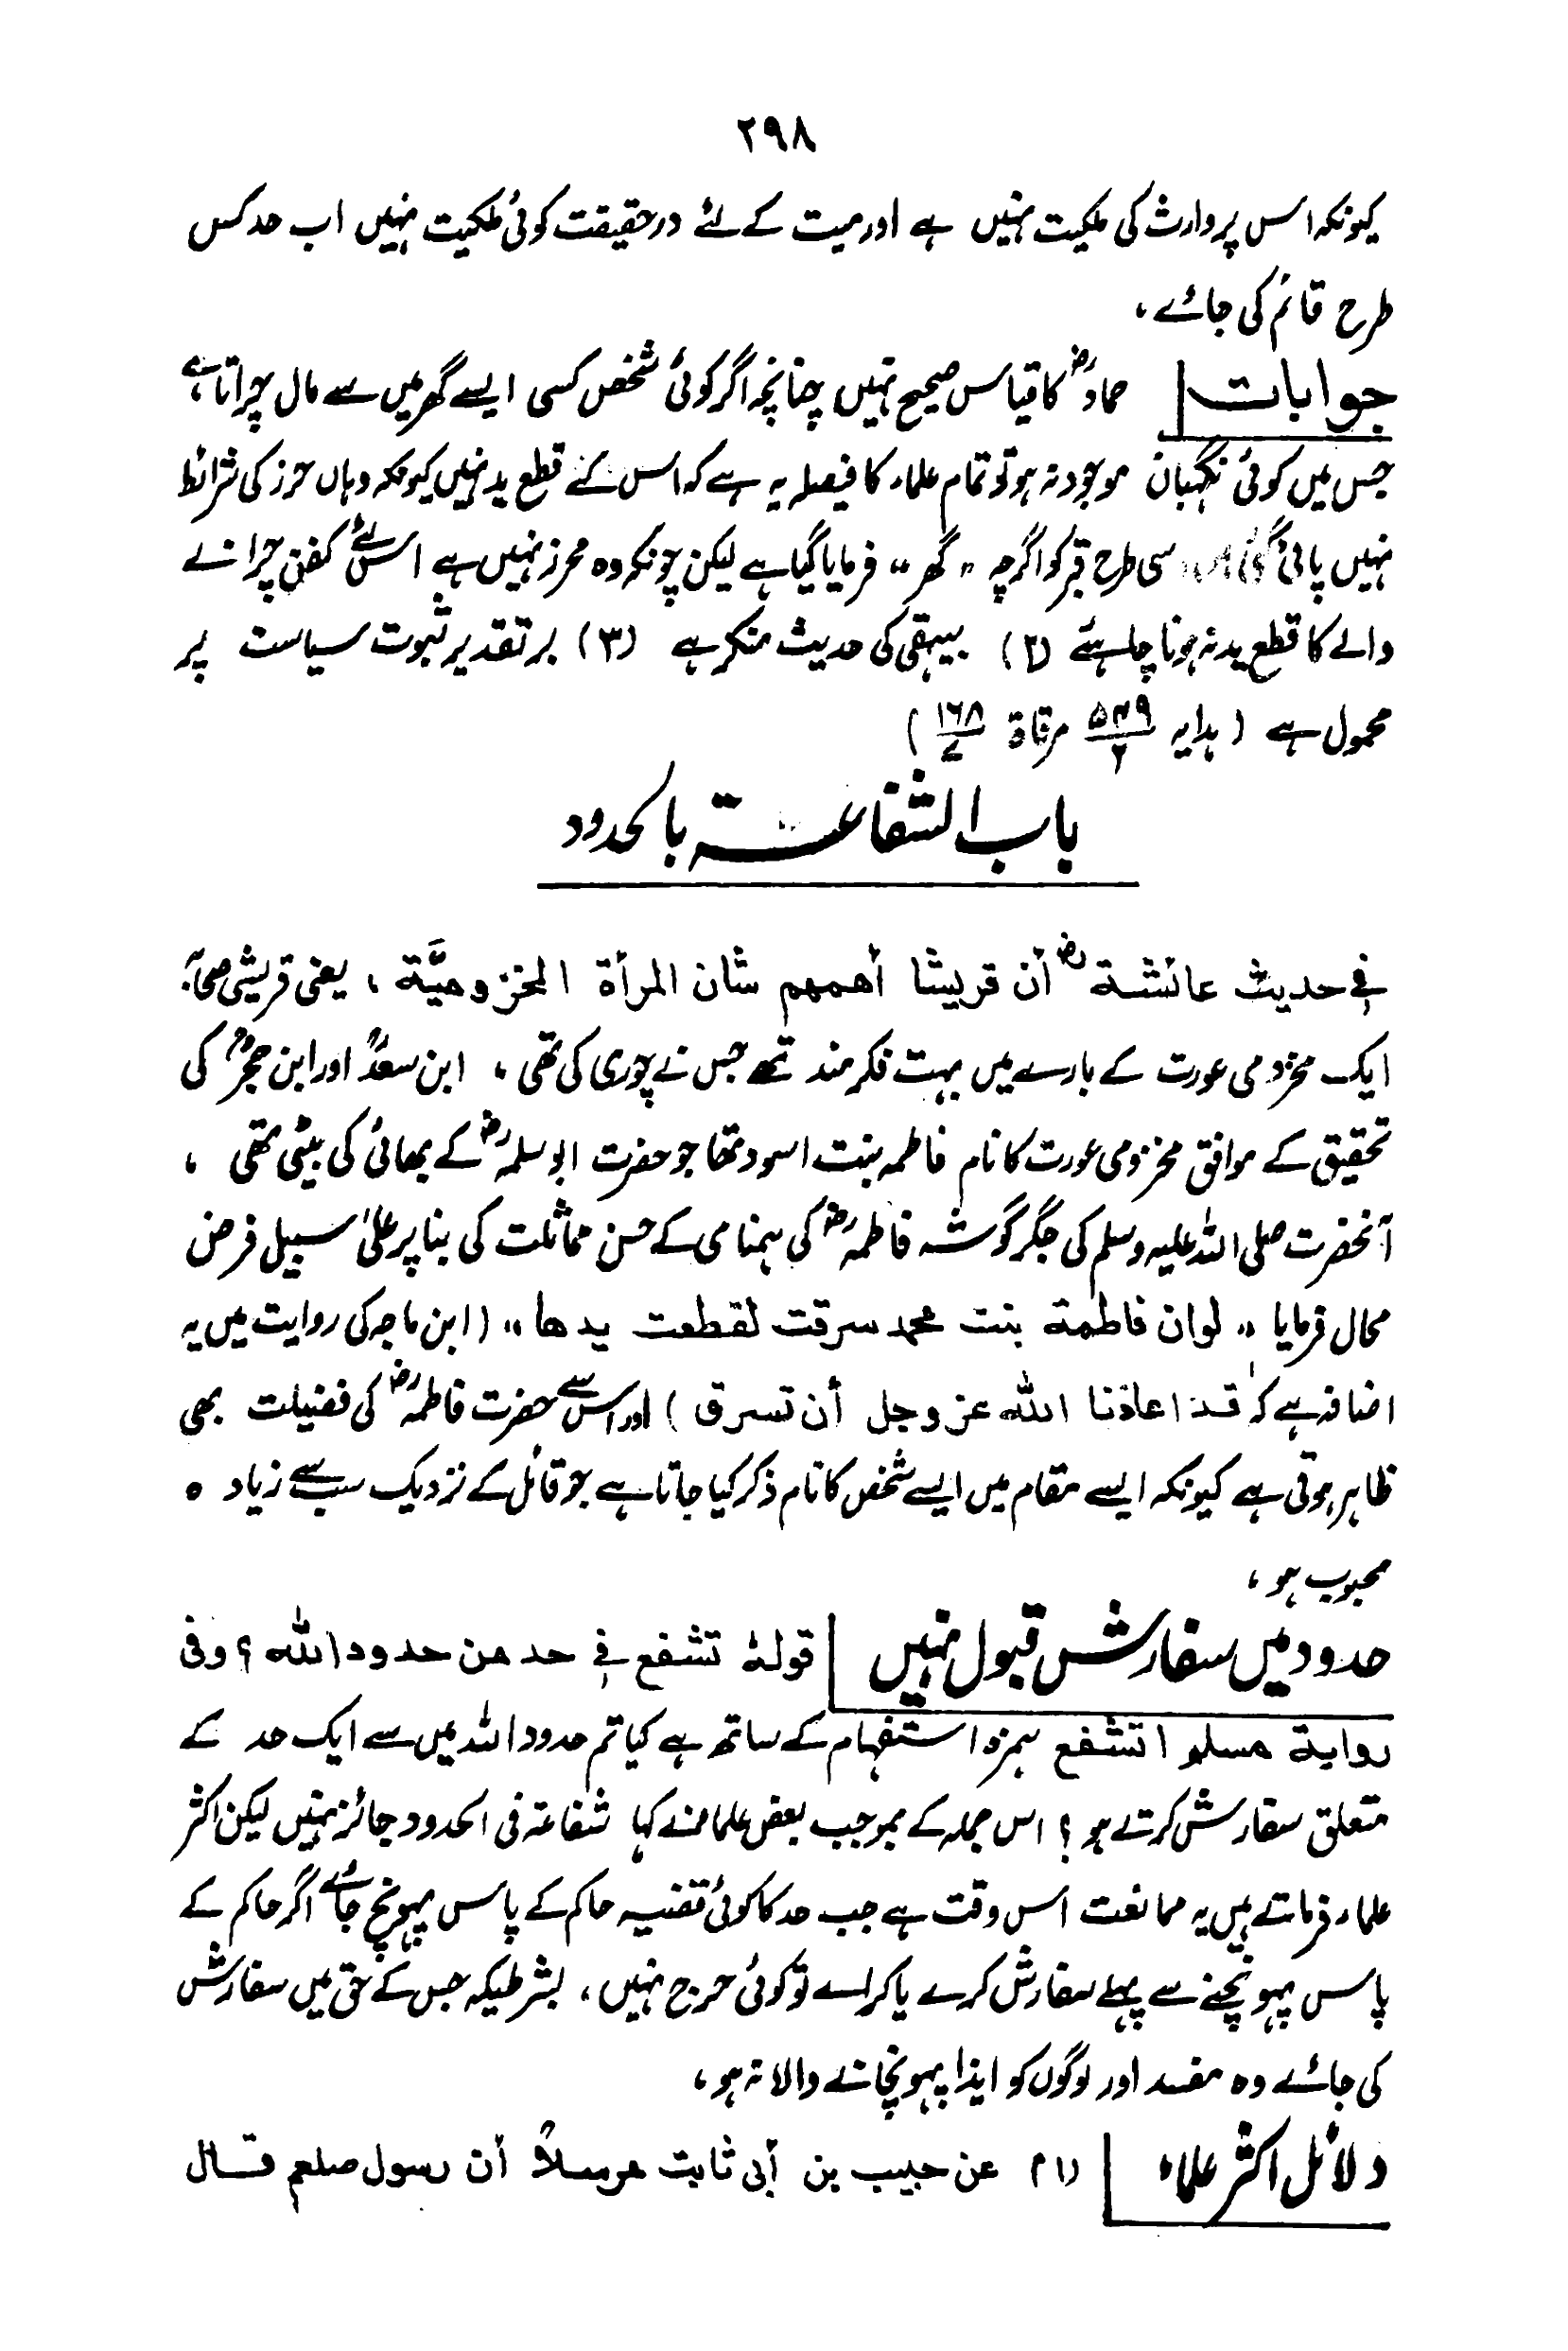 ۲۹۸
کیونکہ اس پر وارث کی ملکیت نہیں ہے اور میت کے لئے درحقیقت کوئی ملکیت نہیں اب حد کس
طرح قائم کی جائے ،
جوابات حمادؒ کا قیاس صحیح نہیں چنانچہ اگر کوئی شخص کسی ایسے گھر میں سے مال چراتا ہے
جس میں کوئی نگہبان موجود نہ ہو تو تمام علماء کا فیصلہ یہ ہے کہ اس کے قطع ید نہیں کیونکہ وہاں حرز کی شرائط
نہیں پائی گئی سی طرح قبر کو اگرچہ " گھر " فرمایا گیا ہے لیکن چونکہ وہ محرز نہیں ہے اسلئے کفن چرانے
والے کا قطع ید نہ ہونا چاہئے (۲) بیہقی کی حدیث منکر ہے (۳) بر تقدیر ثبوت سیاست پر
محمول ہے ( ہدایہ ۵۳۹/۲ مرقاة ۱۶۸/۷ )
باب الشفاعة بالحدود
فی حدیث عائشة رضؓ أن قریشا أهمهم شان المرأة المخزومیَّة ، یعنی قریشی صحابہ
ایک مخزومی عورت کے بارے میں بہت فکرمند تھے جس نے چوری کی تھی ، ابن سعدؒ اور ابن حجرؒ کی
تحقیق کے موافق مخزومی عورت کا نام فاطمہ بنت اسود تھا جو حضرت ابو سلمہؓ کے بھائی کی بیٹی تھی ،
آنحضرت صلی اللہ علیہ وسلم کی جگر گوشہ فاطمہؓ کی ہمنامی کے حسن مماثلت کی بنا پر علیٰ سبیل فرض
محال فرمایا " لوان فاطمة بنت محمد سرقت لقطعت یدها " ( ابن ماجہ کی روایت میں یہ
اضافہ ہے کہ قد اعاذنا الله عزوجل أن تسرق ) اور اس سے حضرت فاطمہؓ کی فضیلت بھی
ظاہر ہوتی ہے کیونکہ ایسے مقام میں ایسے شخص کا نام ذکر کیا جاتا ہے جو قائل کے نزدیک سب سے زیادہ
محبوب ہو ،
حدود میں سفارش قبول نہیں قولهٗ تشفع فی حد من حدود الله ؟ وفی
روایة مسلم اتشفع ہمزہ استفہام کے ساتھ ہے کیا تم حدود اللہ میں سے ایک حد کے
متعلق سفارش کرتے ہو ؟ اس جملہ کے بموجب بعض علما نے کہا شفاعة فی الحدود جائز نہیں لیکن اکثر
علماء فرماتے ہیں یہ ممانعت اس وقت ہے جب حد کا کوئی قضیہ حاکم کے پاس پہونچ جائے اگر حاکم کے
پاس پہونچنے سے پہلے سفارش کرے یا کرائے تو کوئی حرج نہیں ، بشرطیکہ جس کے حق میں سفارش
کی جائے وہ مفسد اور لوگوں کو ایذا پہونچانے والا نہ ہو ،
دلائل اکثر علماء (۱) عن حبیب بن أبی ثابت مرسلاً أن رسول صلعم قال